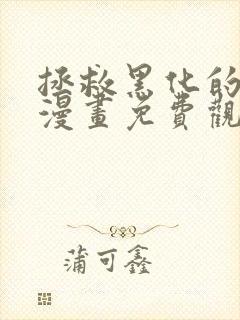 拯救黑化的
漫畫免費觀
蒲可鑫